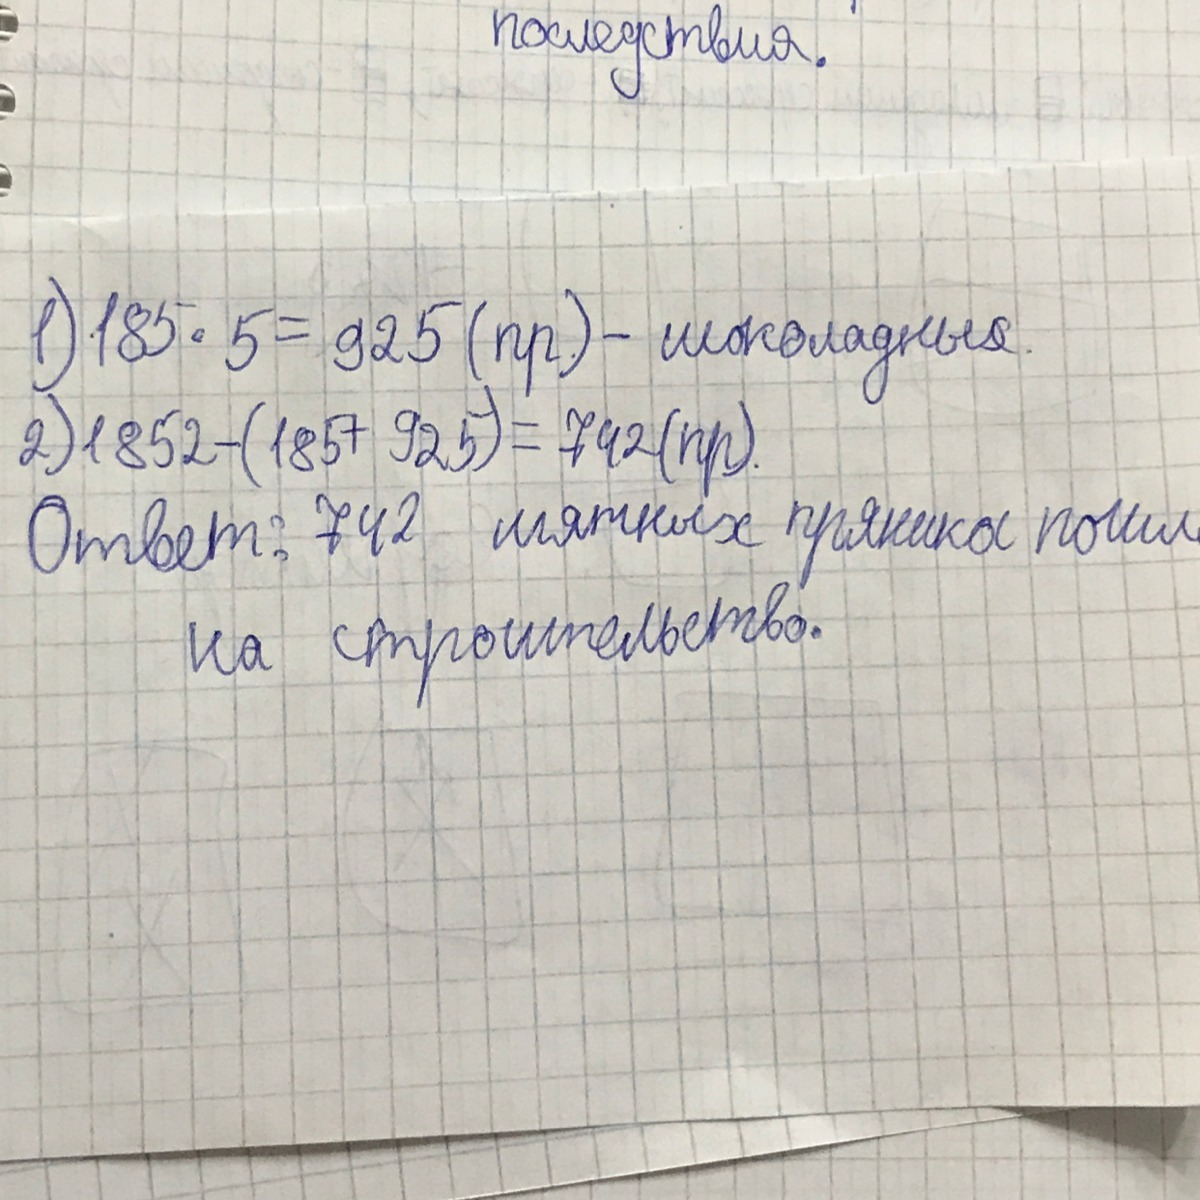 последствия.
1) 185 · 5 = 925 (пр.) - шоколадных.
2) 1852 - (185 + 925) = 742 (пр).
Ответ: 742 мятных пряника пошл
на строительство.